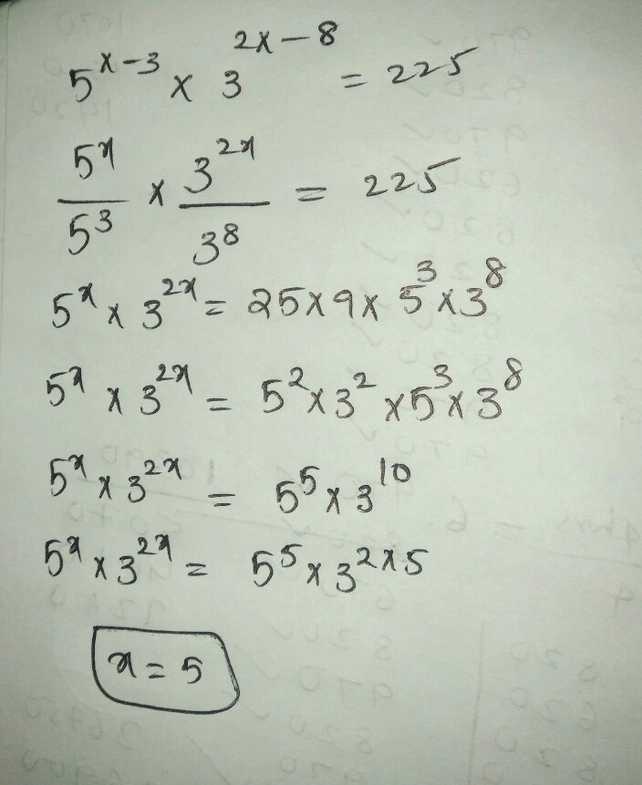 5^{x-3} × 3^{2x-8} = 225
5^x/5^3 × 3^{2x}/3^8 = 225
5^x × 3^{2x} = 25×9× 5^3×3^8
5^x × 3^{2x} = 5^2×3^2×5^3×3^8
5^x × 3^{2x} = 5^5×3^{10}
5^x × 3^{2x} = 5^5×3^{2×5}
x = 5